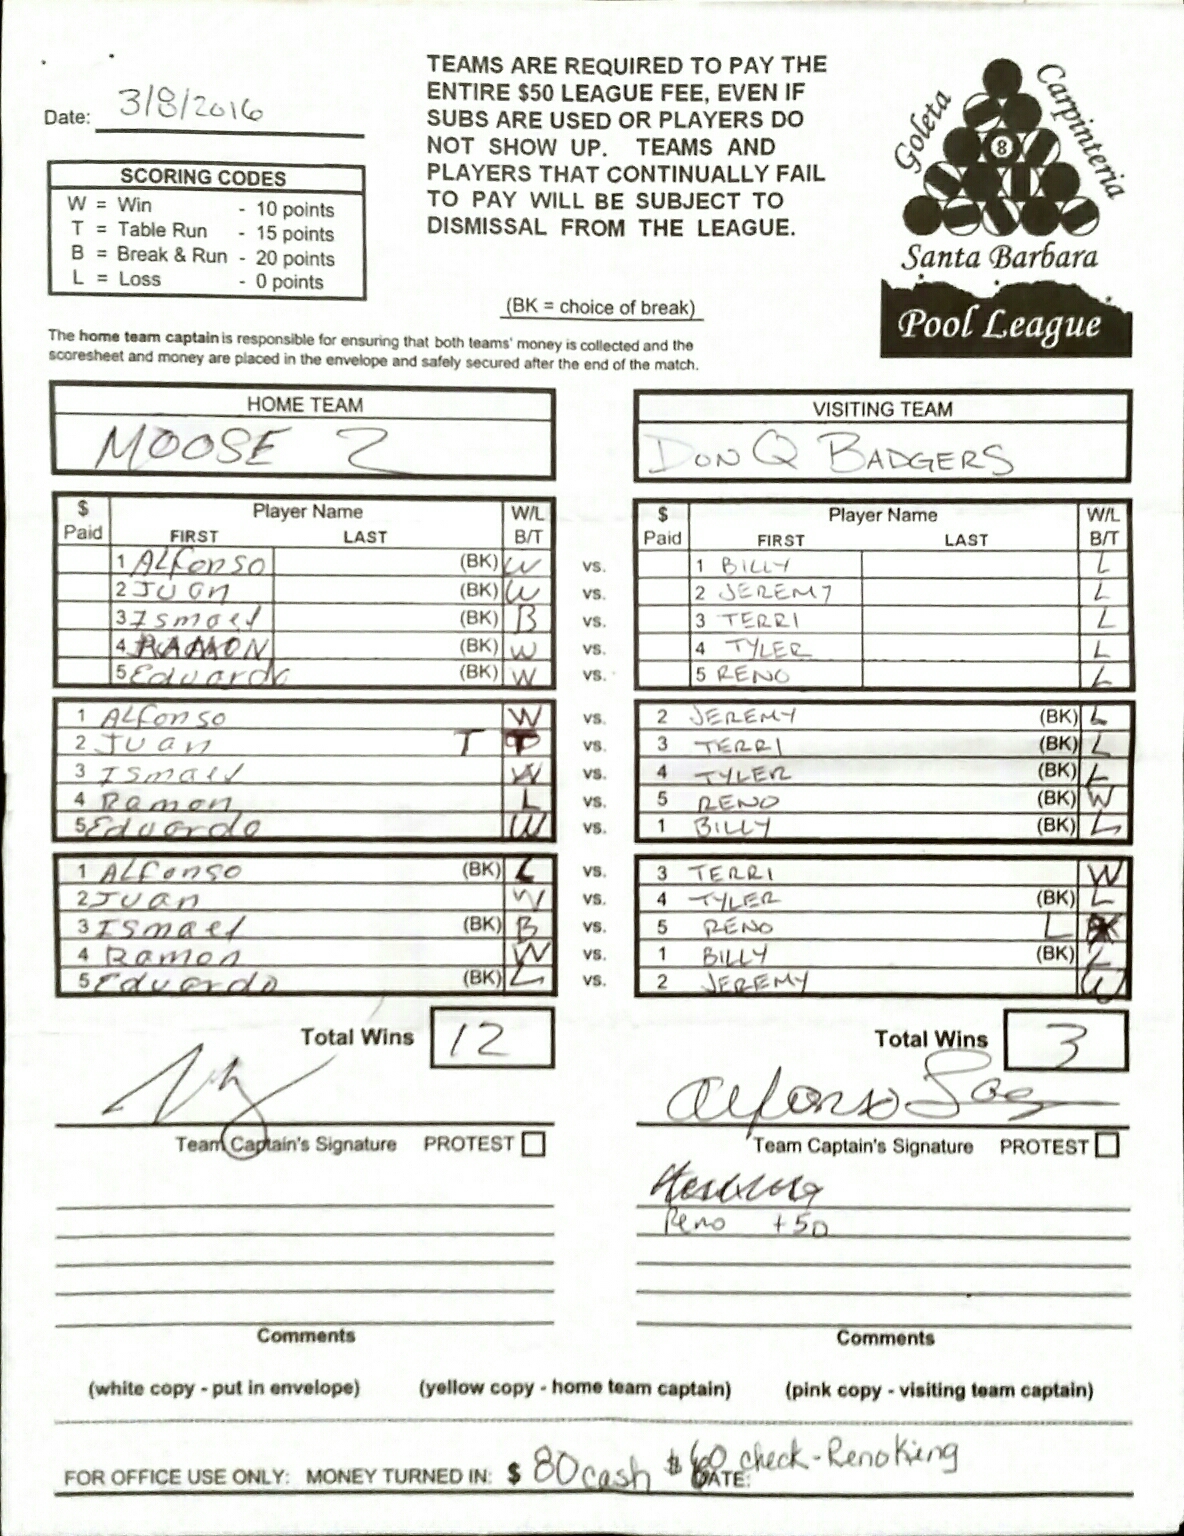 Date: 3/8/2016
TEAMS ARE REQUIRED TO PAY THE
ENTIRE $50 LEAGUE FEE, EVEN IF
SUBS ARE USED OR PLAYERS DO
NOT SHOW UP. TEAMS AND
PLAYERS THAT CONTINUALLY FAIL
TO PAY WILL BE SUBJECT TO
DISMISSAL FROM THE LEAGUE.
Goleta
Carpinteria
8
Santa Barbara
Pool League
SCORING CODES
W = Win - 10 points
T = Table Run - 15 points
B = Break & Run - 20 points
L = Loss - 0 points
(BK = choice of break)
The home team captain is responsible for ensuring that both teams' money is collected and the
scoresheet and money are placed in the envelope and safely secured after the end of the match.
HOME TEAM VISITING TEAM
MOOSE 2 DON Q BADGERS
$ Player Name W/L $ Player Name W/L
Paid FIRST LAST B/T Paid FIRST LAST B/T
1 Alfonso (BK) W vs. 1 BILLY L
2 Juan (BK) W vs. 2 JEREMY L
3 Ismael (BK) B vs. 3 TERRI L
4 RAMON (BK) W vs. 4 TYLER L
5 Eduardo (BK) W vs. 5 RENO L
1 Alfonso W vs. 2 JEREMY (BK) L
2 Juan T T vs. 3 TERRI (BK) L
3 Ismael W vs. 4 TYLER (BK) L
4 Ramon L vs. 5 RENO (BK) W
5 Eduardo W vs. 1 BILLY (BK) L
1 Alfonso (BK) L vs. 3 TERRI W
2 Juan W vs. 4 TYLER (BK) L
3 Ismael (BK) B vs. 5 RENO L
4 Ramon W vs. 1 BILLY (BK) L
5 Eduardo (BK) L vs. 2 JEREMY W
Total Wins 12 Total Wins 3
Alfonso
Team Captain's Signature PROTEST Team Captain's Signature PROTEST
Reno +50
Comments Comments
(white copy - put in envelope) (yellow copy - home team captain) (pink copy - visiting team captain)
FOR OFFICE USE ONLY: MONEY TURNED IN: $ 80 cash $ 60 check - Reno King
DATE: